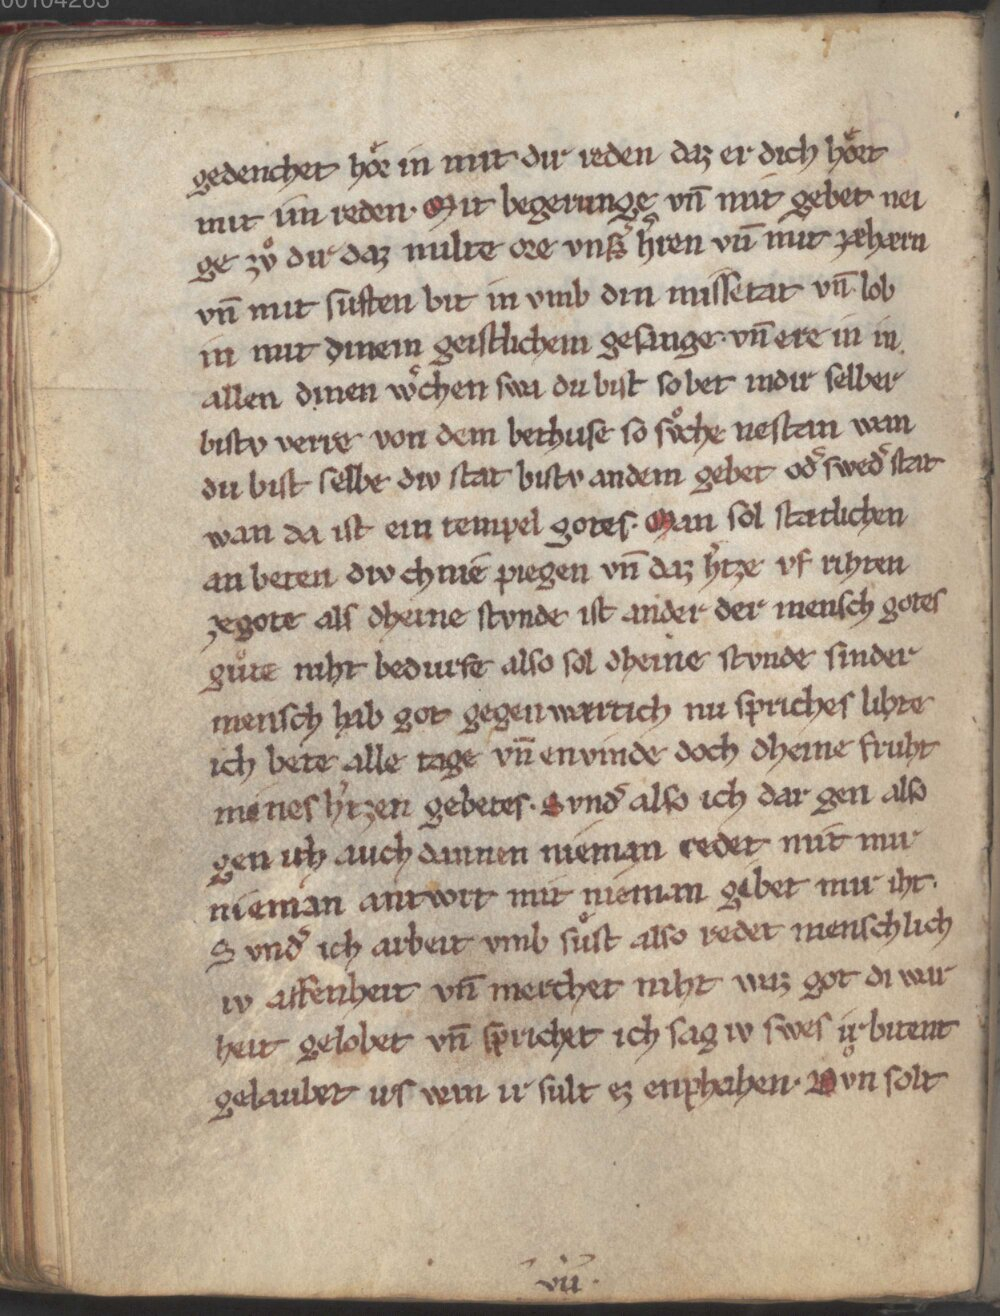 00104263
gedenchet hoͤr in mit dir reden daz er dich hoͤrt
mit im reden. Mit begerunge vn̄ mit gebet nei
ge zvͦ dir daz milte ore vnsˢ hˢren vn̄ mit zæhærn
vn̄ mit suften bit in vmb din missetat vn̄ lob
in mit dinem geistlichem gesange. vn̄ ere in in
allen dinen wͦchen swa du bist so bet in dir selber
bistv verre von dem bethuse so suͦche ne stan wan
du bist selbe div stat bistv an dem gebet odˢ swedˢ stat
wan da ist ein tempel gotes. Man sol stætlichen
an beten div chnie piegen vn̄ daz hˢtze vf rihten
ze gote als dheine stvnde ist an der der mensch gotes
guͤte niht bedurfe also sol dheine stvnde sin der
mensch hab got gegenwærtich nu spriches lihte
ich bete alle tage vn̄ envinde doch dheine fruht
mines hˢtzen gebetes. Svndˢ also ich dar gen also
gen ich auch dannen nieman redet mit mir
nieman antwrt mir nieman gibet mir iht.
Svndˢ ich arbeit vmb suͦst also redet menschlich
iv affenheit vn̄ merchet niht waz got di war
heit gelobet vn̄ sprichet ich sag iv swes ir bitent
gelaubet irs wan ir sult ez enphahen. Nvͦn solt
vii.